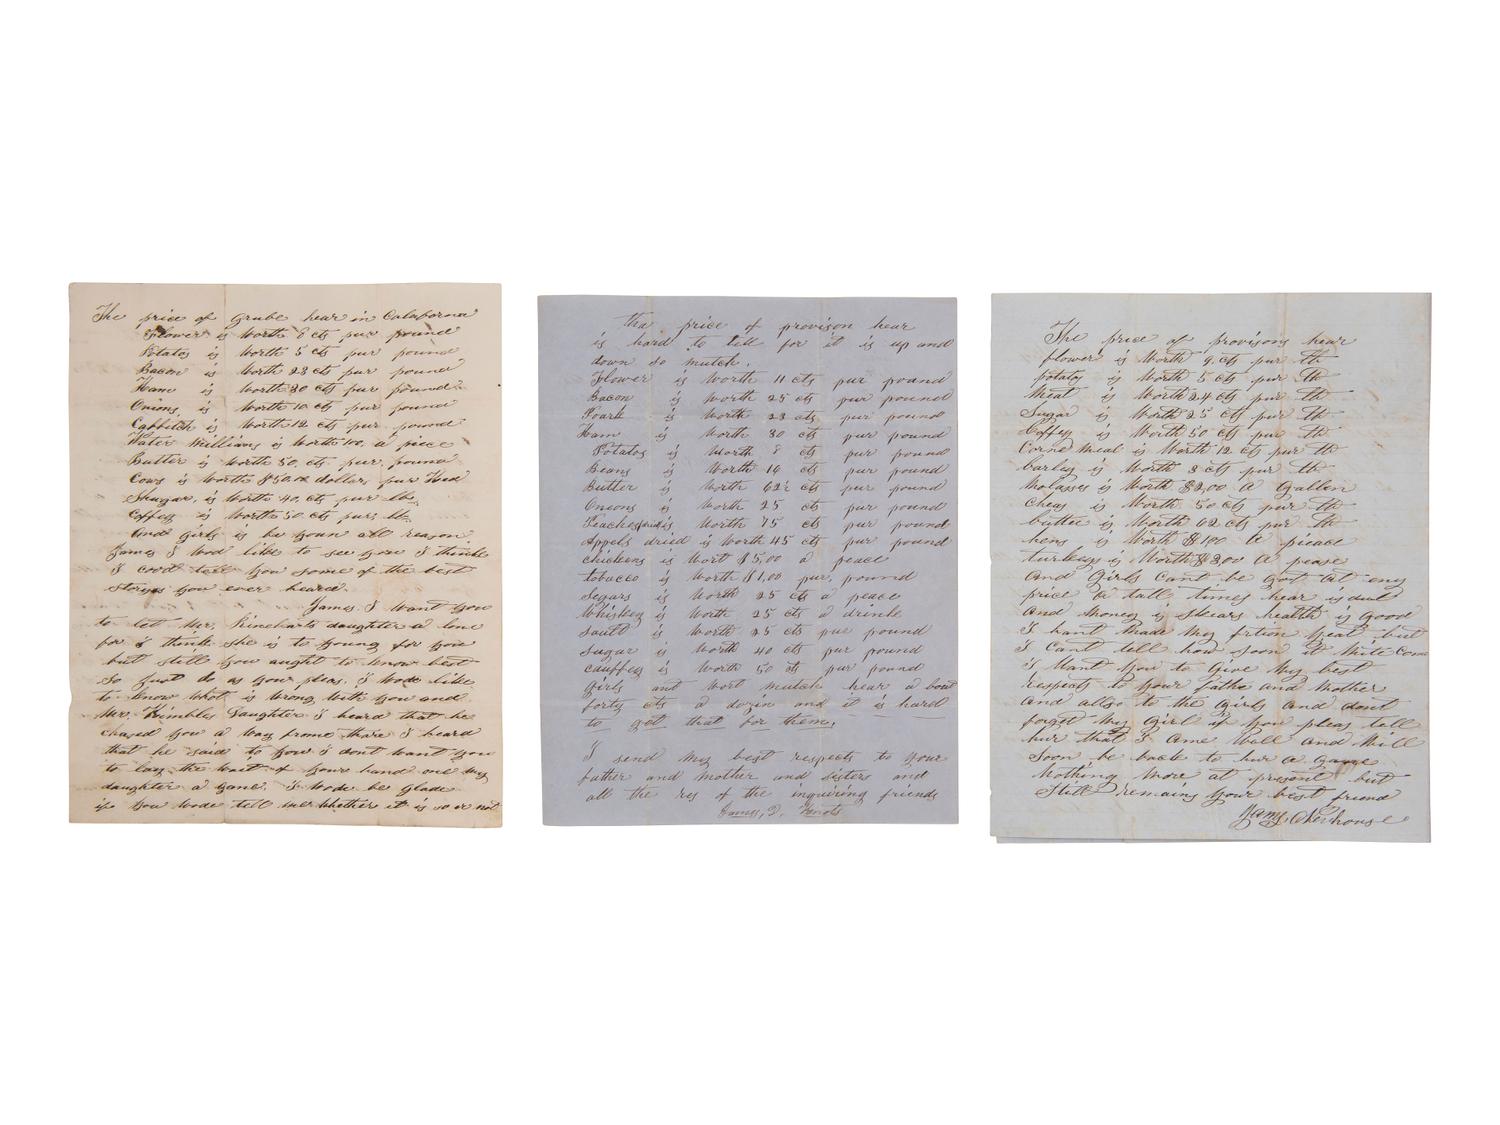 The price of grube hear in Calaforna
Flower is Worth 8 cts pur pound
Potatos is Worth 5 cts pur pound
Bacon is Worth 28 cts pur pound
Ham is Worth 30 cts pur pound
Onions is Worth 10 cts pur pound
Cabbith is Worth 12 cts pur pound
Water Millions is Worth 100, a piece
Butter is Worth 50, cts pur pound
Cows is Worth $50.00 dollars pur Hed
Shugar, is Worth 40, cts pur lb,
Coffey is Worth 50 cts pur, lb,
And girls is be youn all reason
James I Wod like to see you I think
I cood tell you some of the best
storyes you ever heard.
James I Want you
to let Mr. Rineharts daughter a lone
for I think she is to young for you
but still you aught to know best
So Just do as you pleas, I wode like
to know What is Wrong With you and
Mr. Kimbles Daughter I heard that he
chased you a Way frome thare I heard
that he said to you I dont Want you
to lay the Wait of your hand one my
daughter a gane. I Wode be glade
if you Wode tell me Whether it is so or not
tha price of provison hear
is hard to tell for it is up and
down so mutch.
Flower is Worth 11 cts pur pound
Bacon is Worth 25 cts pur pound
Poark is Worth 23 cts pur pound
Ham is Worth 30 cts pur pound
Potatos is Worth 8 cts pur pound
Beans is Worth 16 cts pur pound
Butter is Worth 62½ cts pur pound
Oneons is Worth 25 cts pur pound
Peaches dried is Worth 75 cts pur pound
Appels dried is Worth 45 cts pur pound
chickens is Wort $5,00 a peace
tobacco is Worth $1,00 pur, pound
Segars is Worth 25 cts a peace
Whiskey is Worth 25 cts a drink
Sault is Worth 25 cts pur pound
Sugar is Worth 40 cts pur pound
Cauffey is Worth 50 cts pur pound
Girls ant Wort mutch hear a bout
forty cts a dozin and it is hard
to get that for them,
I send my best respects to your
father and mother and sisters and
all the res of the inquiring friends
James, D,
The price of provisons hear
flower is Worth 9, cts pur lb
potatos is Worth 5 cts pur lb
Meat is Worth 24 cts pur lb
Sugar is Worth 25 cts pur lb
Coffey is Worth 50 cts pur lb
Corne meal is Worth 12 cts pur lb
barley is Worth 8 cts pur lb
Molasses is Worth $2,00 a Gallen
cheas is Worth 50 cts pur lb
butter is Worth 62 cts pur lb
hens is Worth $4,00 a pieace
turkeys is Worth $8,00 a pease
And Girls Cant be got at eny
price a tall times hear is dul
And money is skears health is good
I hant Made My frtion yeat but
I Cant tell how soon it Mite Come
I Want You to Give My best
respects to your father and Mother
and allso to the Girls and dont
forget My Girl if You pleas tell
hur that I ame Well and Will
Soon be back to hur a Gane
Nothing More at present but
Still remains your best friend
James